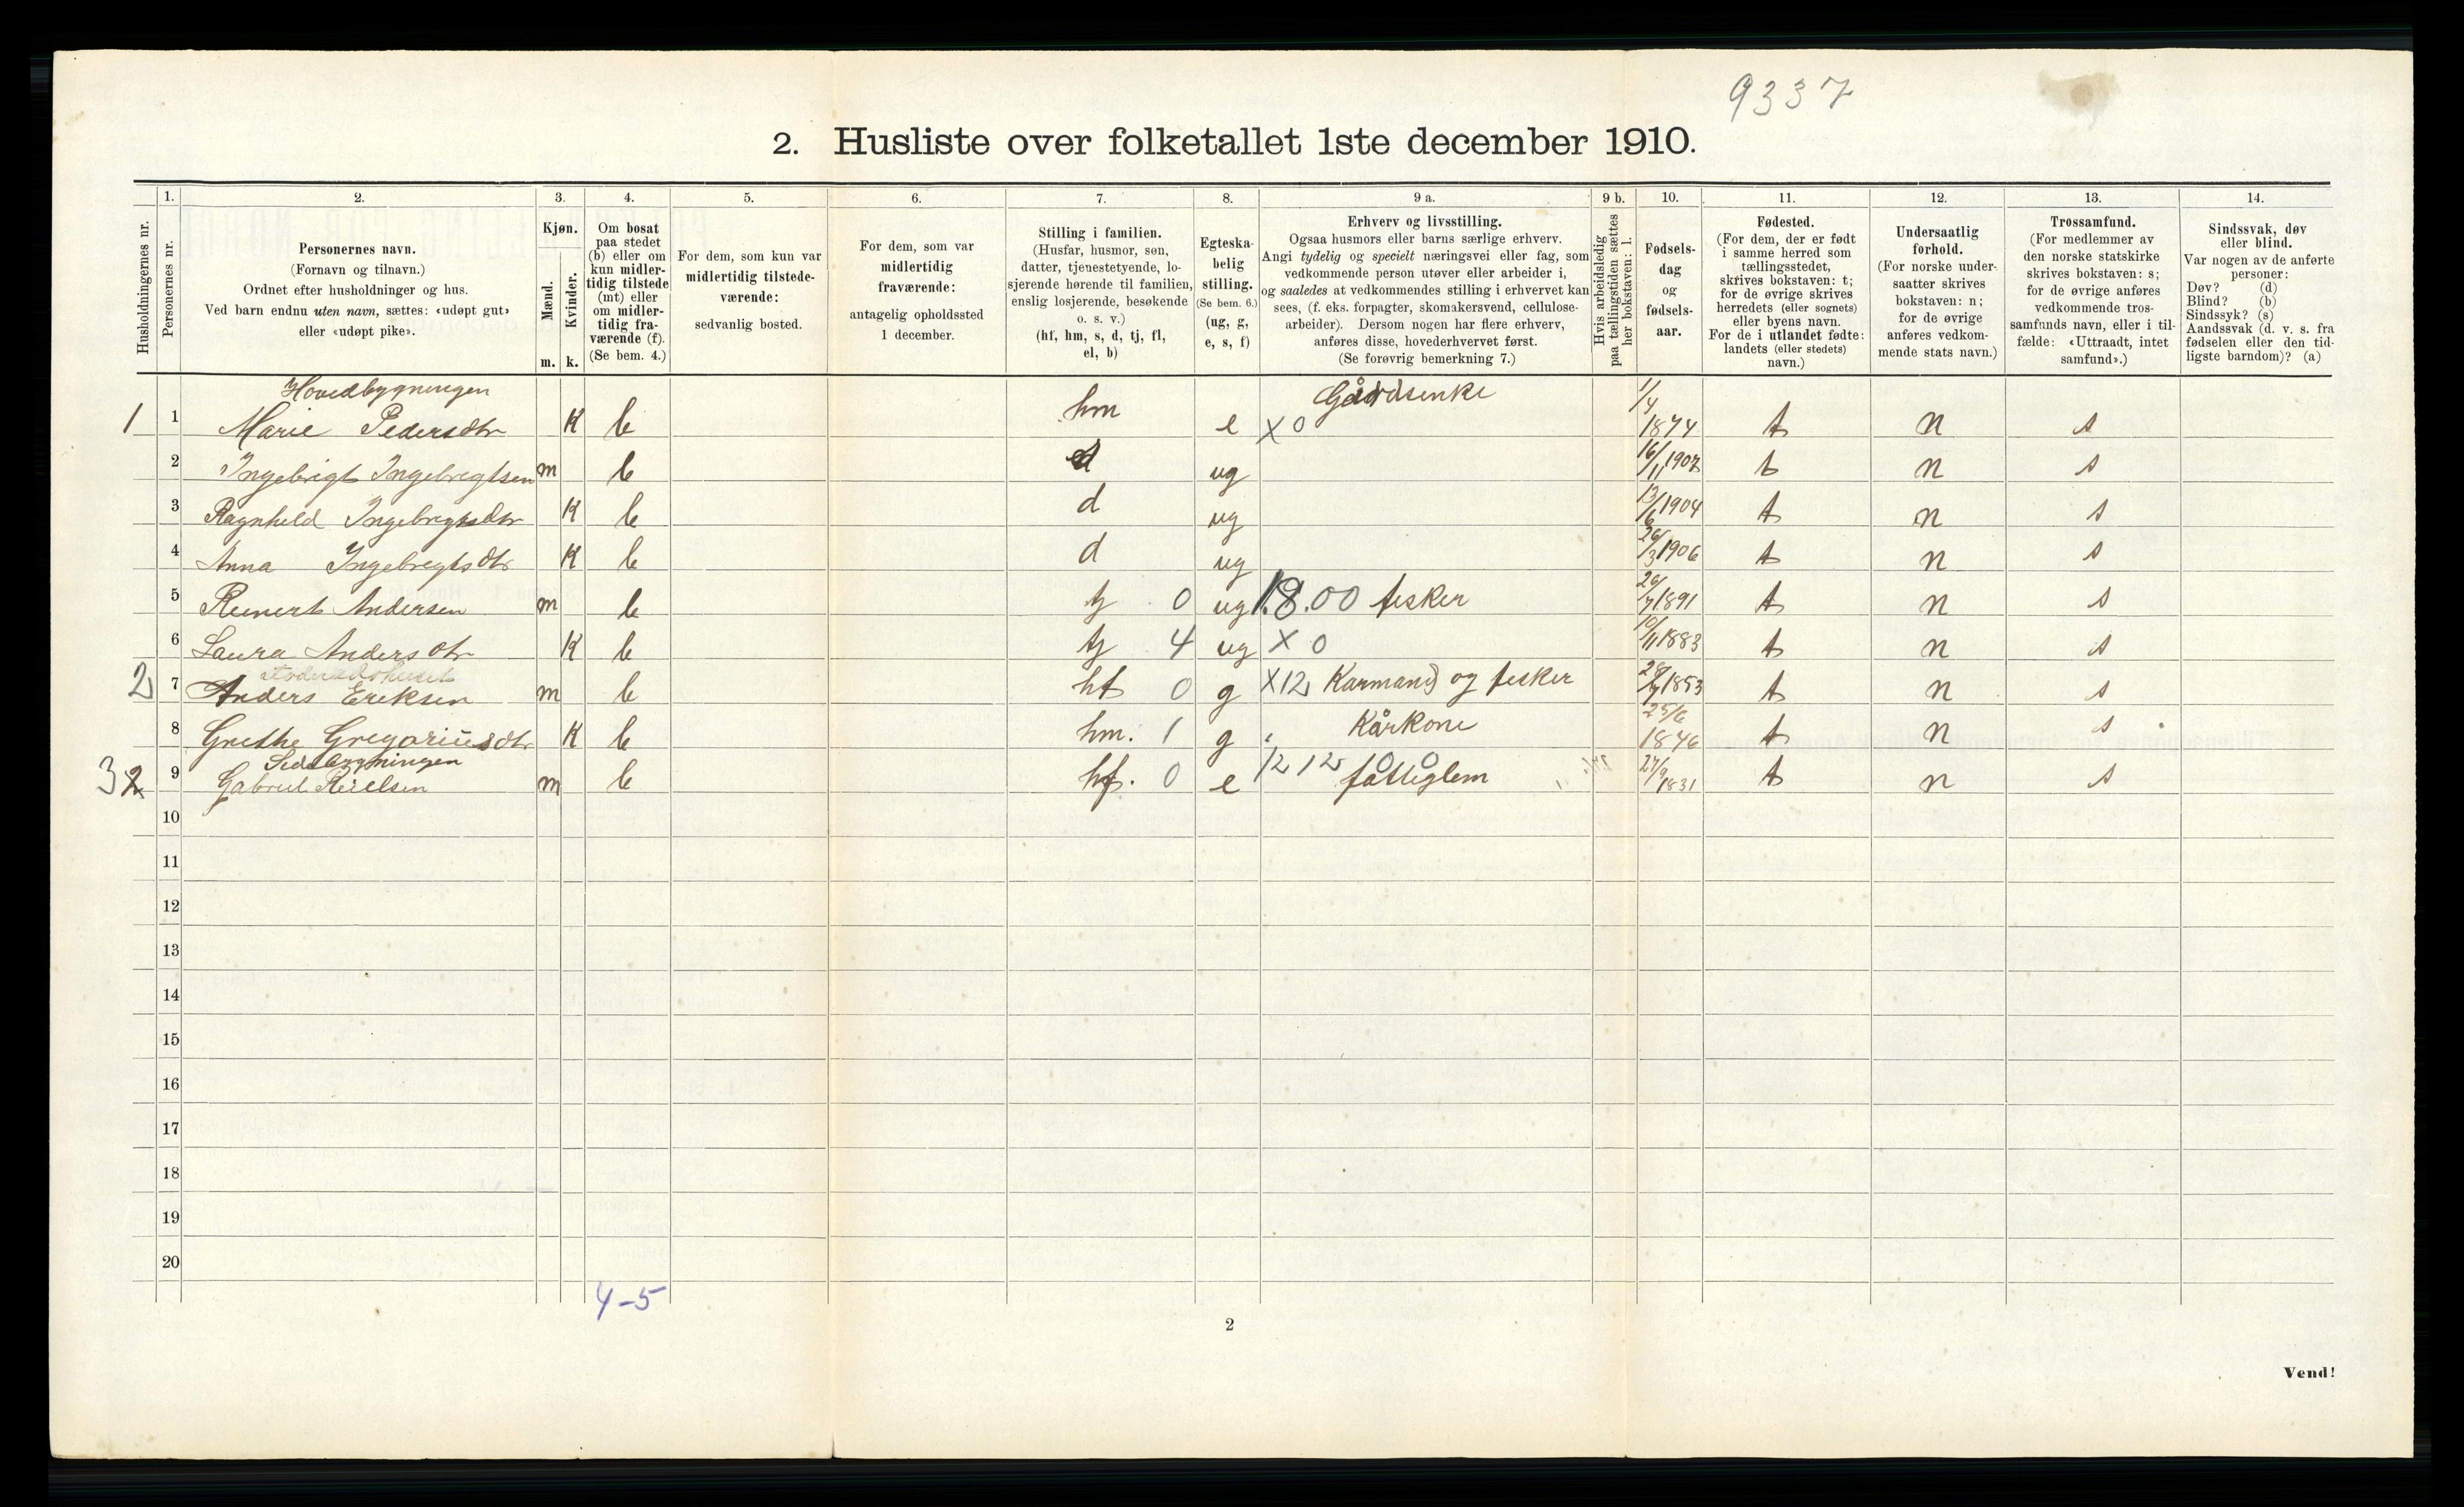 9337
2. Husliste over folketallet 1ste december 1910.
Husholdningernes nr.
1.
Personernes nr.
2.
Personernes navn.
(Fornavn og tilnavn.)
Ordnet efter husholdninger og hus.
Ved barn endnu uten navn, sættes: «udøpt gut»
eller «udøpt pike».
3.
Kjøn.
Mænd.
Kvinder.
m. k.
4.
Om bosat
paa stedet
(b) eller om
kun midler-
tidig tilstede
(mt) eller
om midler-
tidig fra-
værende (f).
(Se bem. 4.)
5.
For dem, som kun var
midlertidig tilstede-
værende:
sedvanlig bosted.
6.
For dem, som var
midlertidig
fraværende:
antagelig opholdssted
1 december.
7.
Stilling i familien.
(Husfar, husmor, søn,
datter, tjenestetyende, lo-
sjerende hørende til familien,
enslig losjerende, besøkende
o. s. v.)
(hf, hm, s, d, tj, fl,
el, b)
8.
Egteska-
belig
stilling.
(Se bem. 6.)
(ug, g,
e, s, f)
9 a.
Erhverv og livsstilling.
Ogsaa husmors eller barns særlige erhverv.
Angi tydelig og specielt næringsvei eller fag, som
vedkommende person utøver eller arbeider i,
og saaledes at vedkommendes stilling i erhvervet kan
sees, (f. eks. forpagter, skomakersvend, cellulose-
arbeider). Dersom nogen har flere erhverv,
anføres disse, hovederhvervet først.
(Se forøvrig bemerkning 7.)
9 b.
Hvis arbeidsledig
paa tællingstiden sættes
her bokstaven: l.
10.
Fødsels-
dag
og
fødsels-
aar.
11.
Fødested.
(For dem, der er født
i samme herred som
tællingsstedet,
skrives bokstaven: t;
for de øvrige skrives
herredets (eller sognets)
eller byens navn.
For de i utlandet fødte:
landets (eller stedets)
navn.)
12.
Undersaatlig
forhold.
(For norske under-
saatter skrives
bokstaven: n;
for de øvrige
anføres vedkom-
mende stats navn.)
13.
Trossamfund.
(For medlemmer av
den norske statskirke
skrives bokstaven: s;
for de øvrige anføres
vedkommende tros-
samfunds navn, eller i til-
fælde: «Uttraadt, intet
samfund».)
14.
Sindssvak, døv
eller blind.
Var nogen av de anførte
personer:
Døv? (d)
Blind? (b)
Sindssyk? (s)
Aandssvak (d. v. s. fra
fødselen eller den tid-
ligste barndom)? (a)
Hovedbygningen
1 1 Marie Pedersdtr K b hm e X 0 Gårdsenke 1/4 1874 t n s
2 Ingebrigt Ingebregtsen m b ug 16/11 1902 t n s
3 Ragnhild Ingebregtsdtr K b d ug 13/6 1904 t n s
4 Anna Ingebregtsdtr K b d ug 26/3 1906 t n s
5 Reinert Andersen m b tj 0 ug 18.00 fisker 26/7 1891 t n s
6 Laura Andersdtr K b tj 4 ug X 0 10/11 1883 t n s
2 7 Anders Eriksen m b hf 0 g X12 Karmand og fisker 28/7 1853 t n s
8 Grethe Gregoriusdtr K b hm. 1 g Kårkone 25/6 1846 t n s
Sidebygningen
3 2 9 Gabriel Reielsen m b hf. 0 e 12 12 fattiglem 27/9 1831 t n s
10
11
12
13
14
15
16
17
18
19
20
4-5
2
Vend!